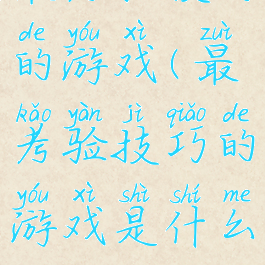 de yóu xì zuì
的游戏(最
kǎo yàn jì qiǎo de
考验技巧的
yóu xì shì shí me
游戏是什么